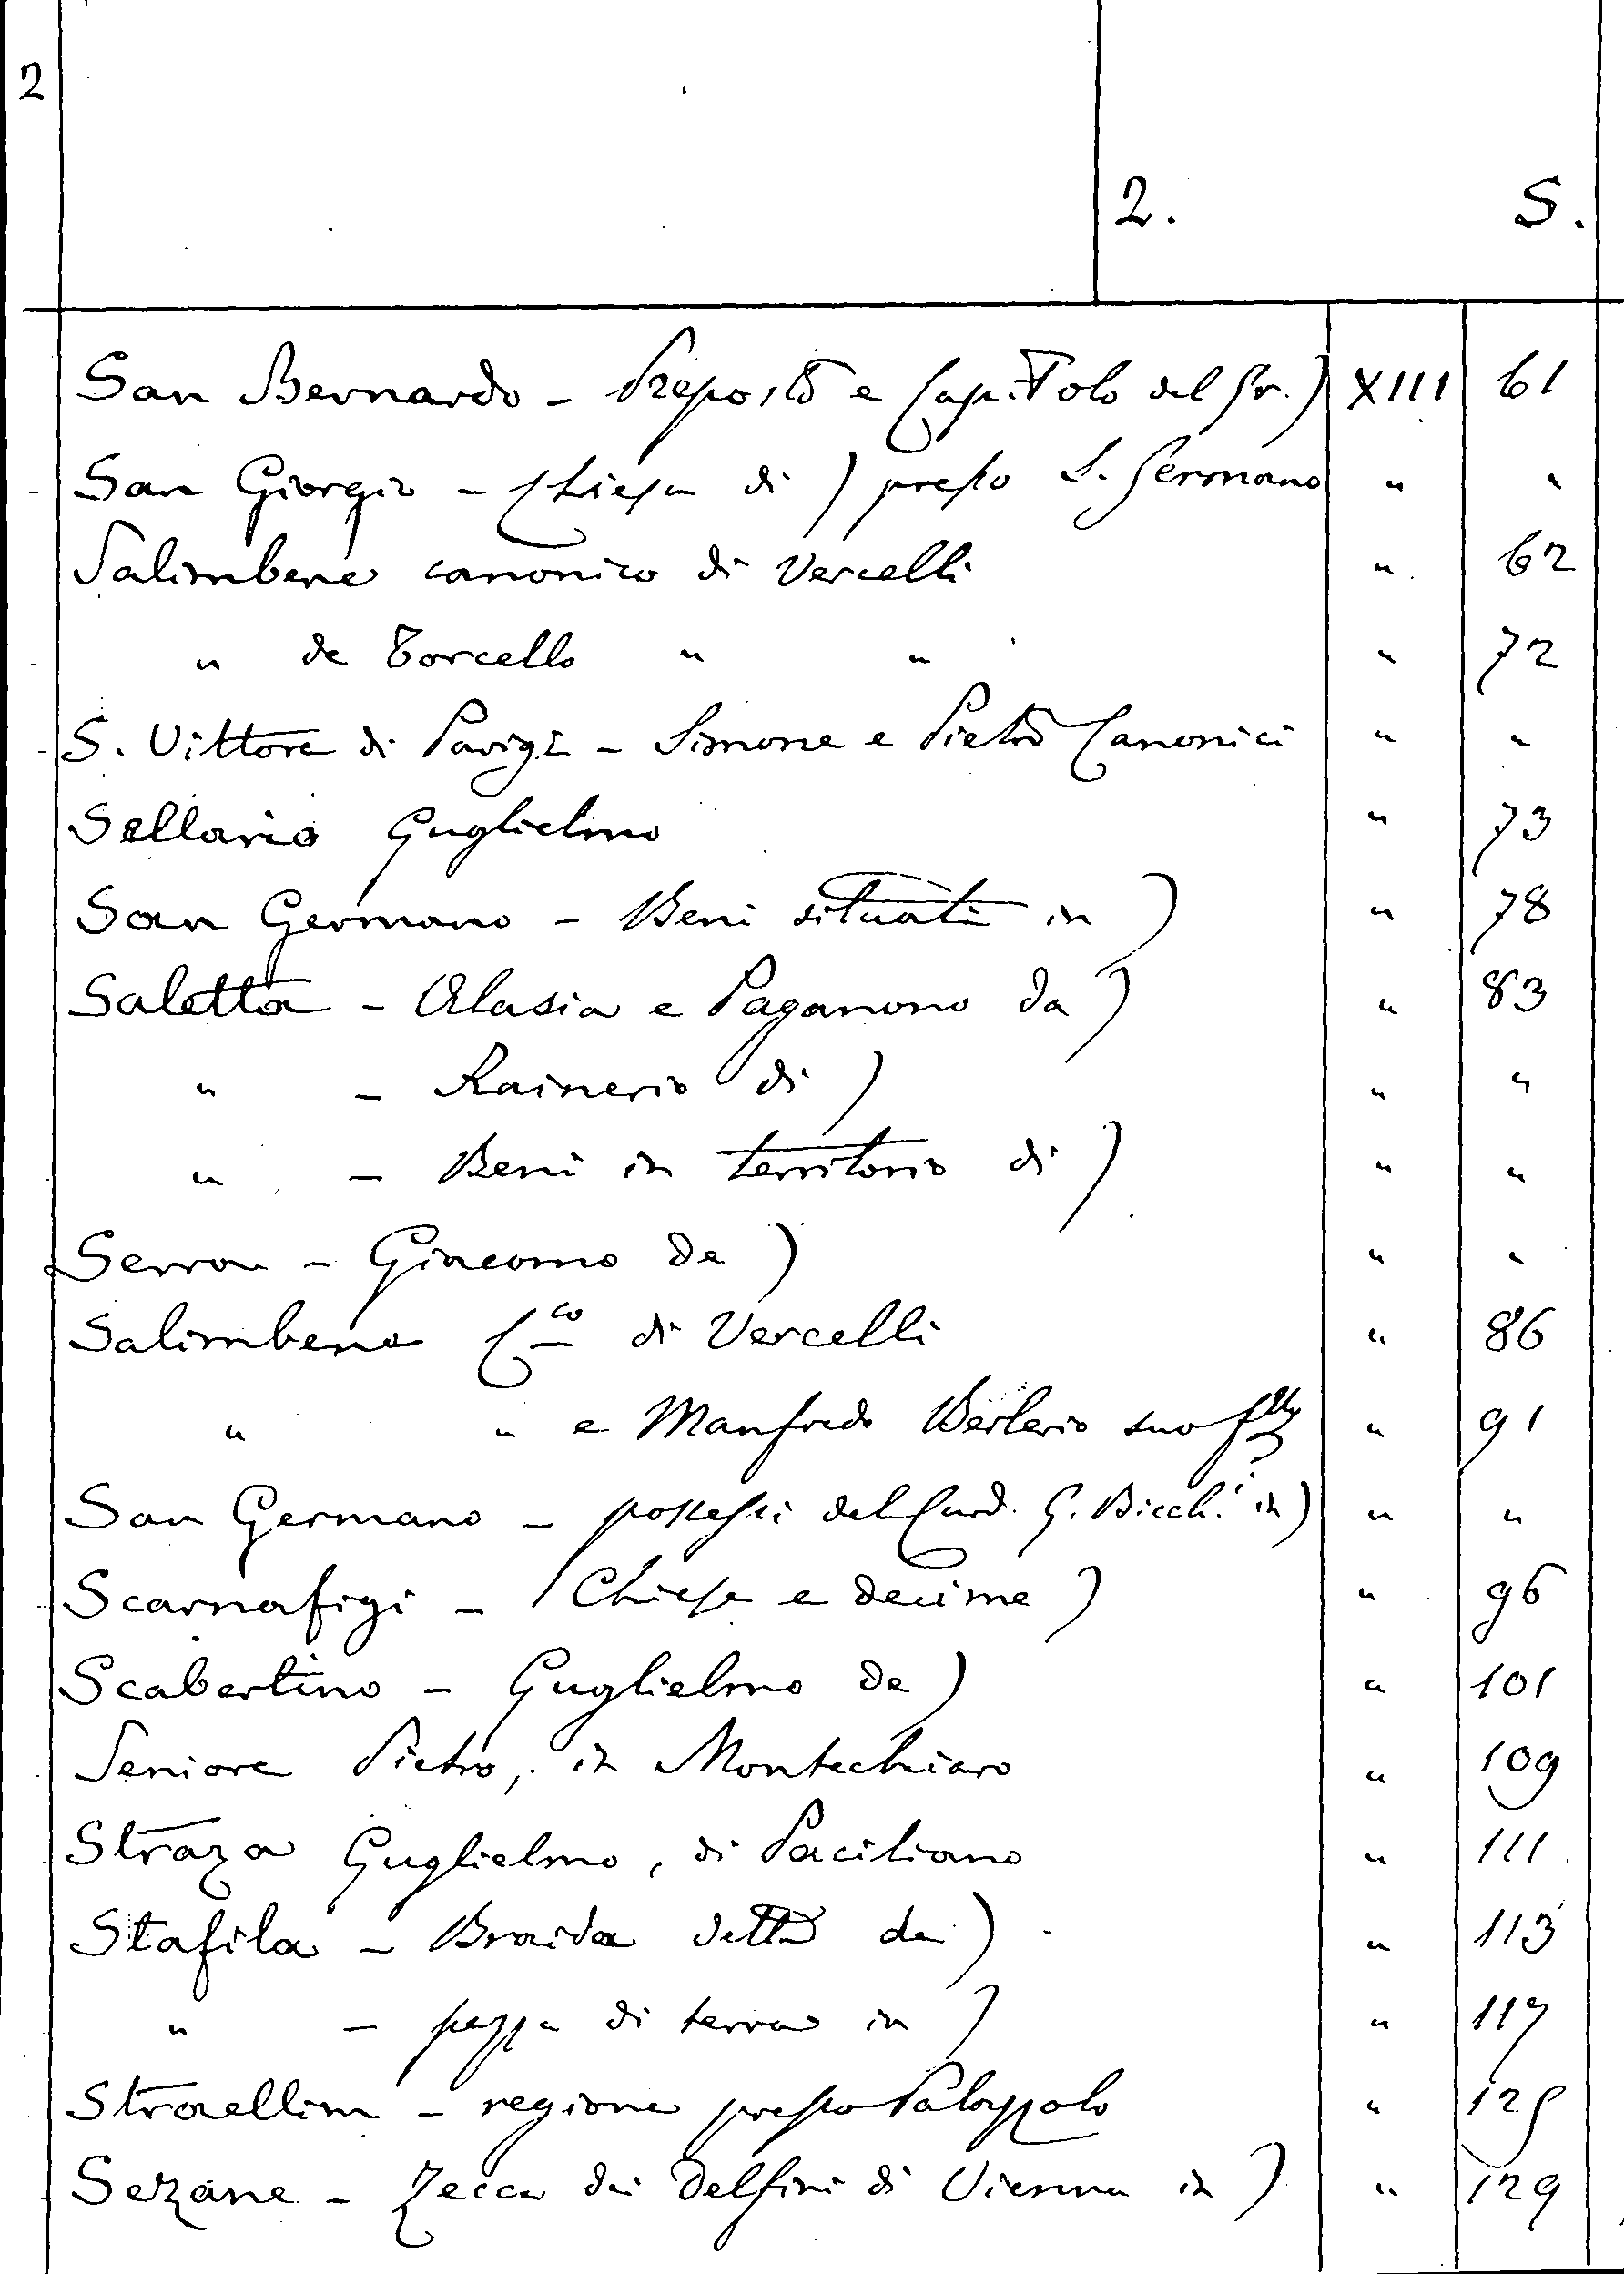 2
2. S.
San Bernardo - Preposto e Capitolo del Gr.) XIII 61
San Giorgio - Chiesa di ) presso S. Germano " "
Salimbene canonico di Vercelli " 62
" de Torcello " " " 72
S. Vittore di Parigi - Simone e Pietro Canonici " "
Sellario Guglielmo " 73
San Germano - Beni situati in ) " 78
Saletta - Alasia e Paganono da ) " 83
" - Rainerio di ) " "
" - Beni in territorio di ) " "
Serra - Giacomo de ) " "
Salimbene C.co di Vercelli " 86
" " e Manfredo Berlerio suo " 91
San Germano - possessi del Card. G. Bicch.i in ) " "
Scarnafigi - Chiese e decime ) " 96
Scabertino - Guglielmo de ) " 101
Seniore Pietro, in Montechiaro " 109
Straza Guglielmo, di Paciliano " 111
Stafila - Braida detta da ) " 113
" - pezza di terra in ) " 117
Straellim - regione presso Palazzolo " 125
Sezane - Zecca dei Delfini di Vienna in ) " 129